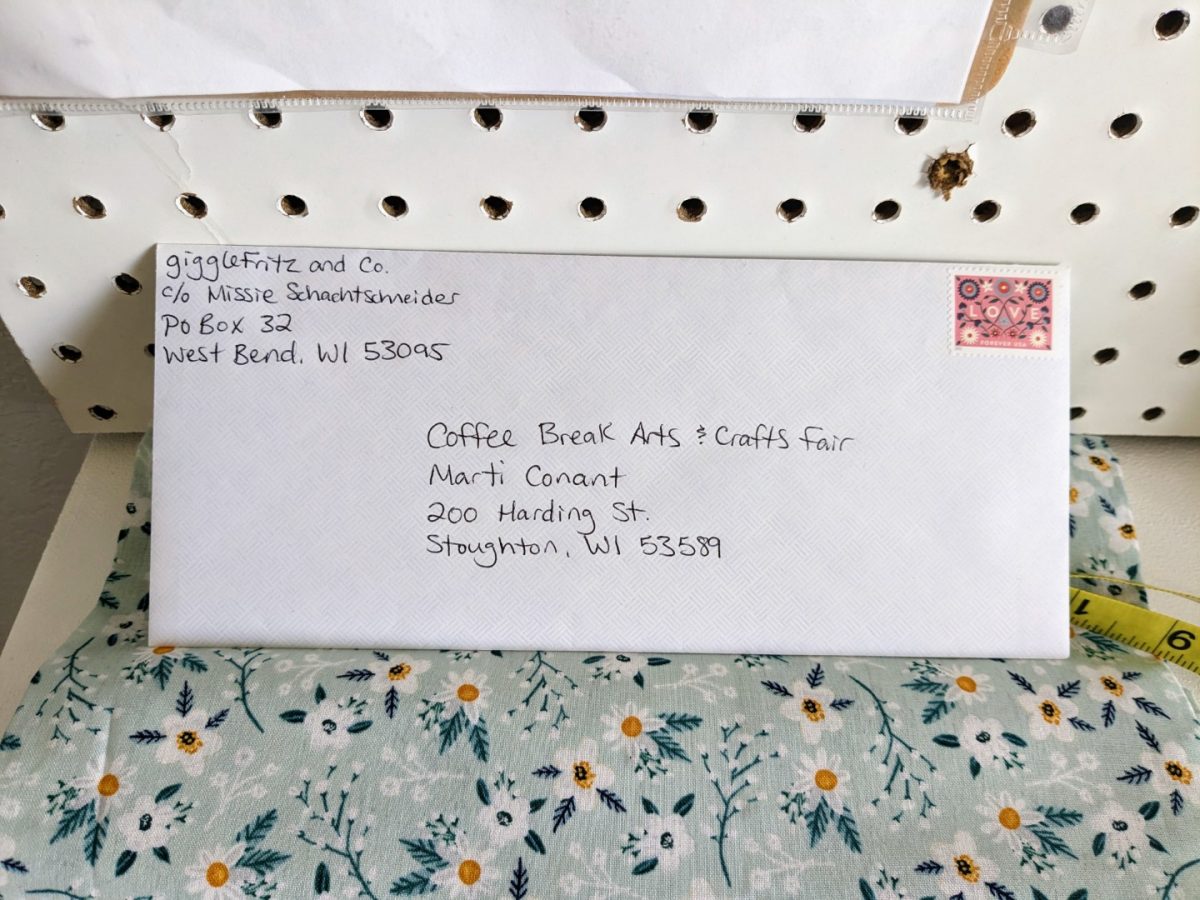 gigglefritz and Co.
c/o Missie Schachtschneider
Po Box 32
West Bend, WI 53095
LOVE
FOREVER USA
Coffee Break Arts & Crafts Fair
Marti Conant
200 Harding St.
Stoughton, WI 53589
1
9